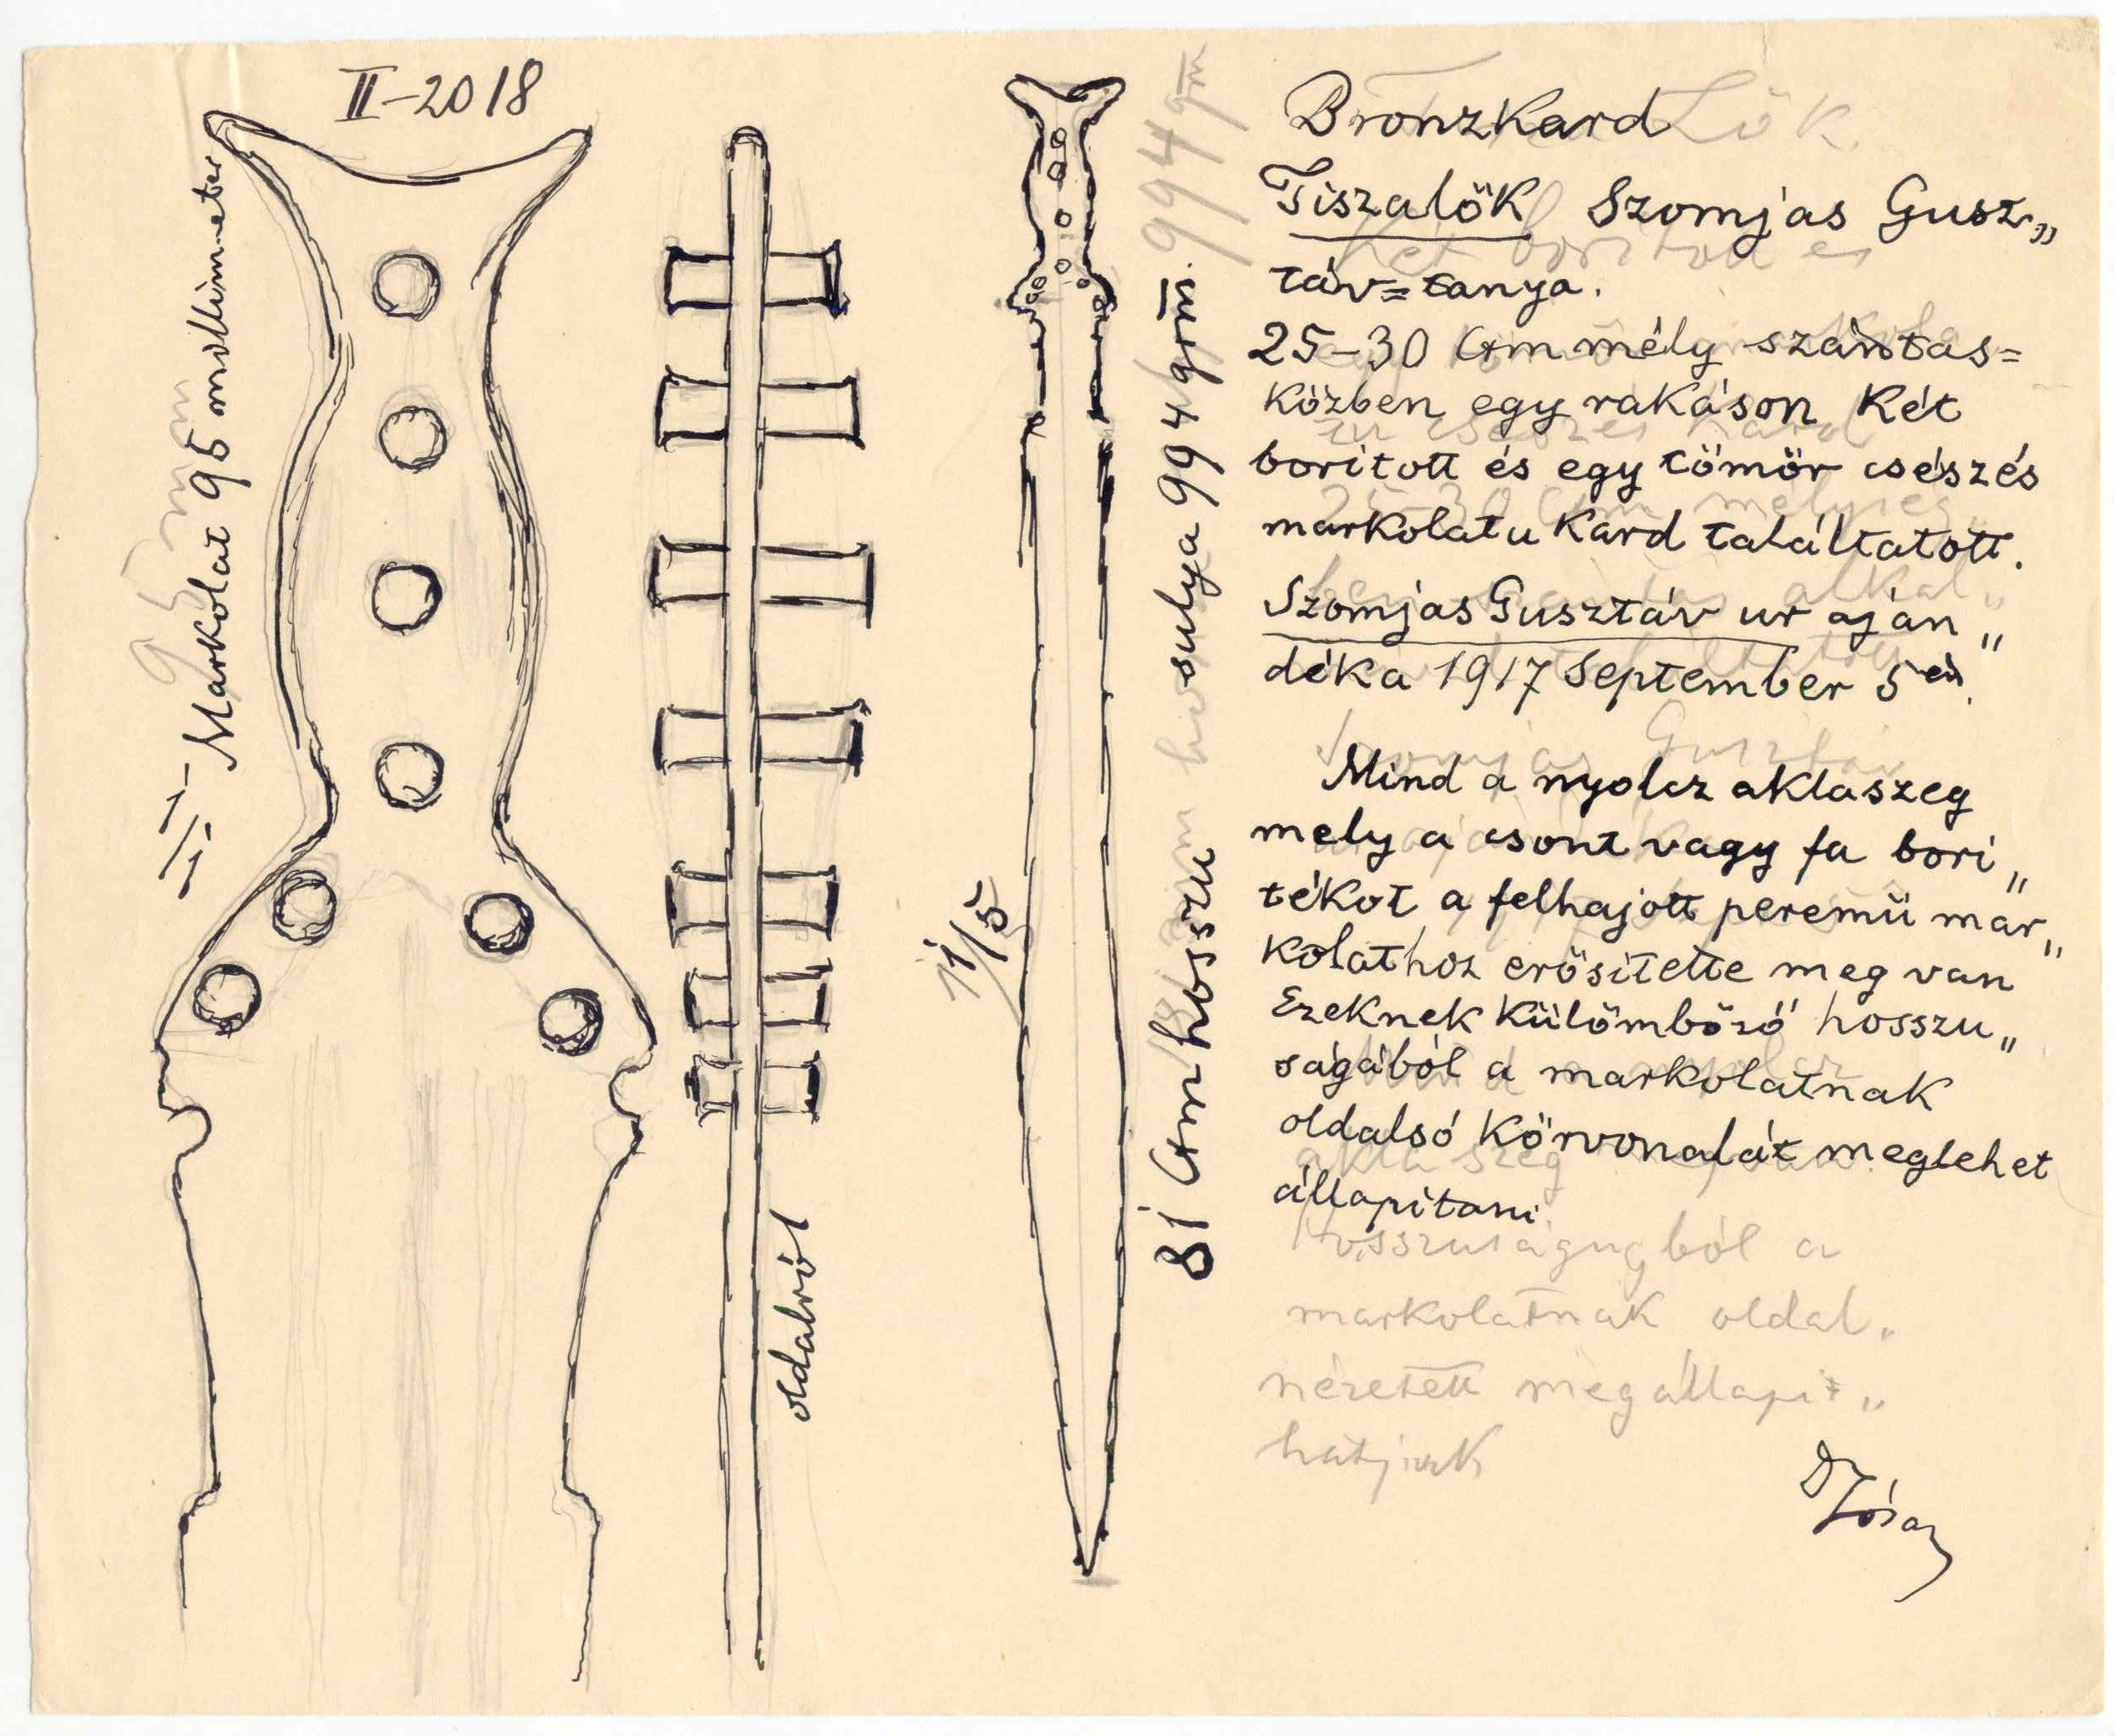 II-2018
Markolat 95 millimeter
1/1
oldalról
1/5
81 Ctm hosszu sulya 994 grm.
994 gm
Bronzkard
Tiszalök Szomjas Gusz„
táv=tanya.
25-30 Ctm mély szántás=
közben egy rakáson két
boritott és egy tömör csészés
markolatu kard találtatott.
Szomjas Gusztáv ur aján„
déka 1917 September 5én.
Mind a nyolcz aklaszeg
mely a csont vagy fa bori„
tékot a felhajott peremü mar„
kolathoz erősitette meg van
Ezeknek külömböző hosszu„
ságából a markolatnak
oldalsó körvonalát meglehet
állapitani.
hosszuságugból a
markolatnak oldal„
nézetett megállapit„
hatjuk